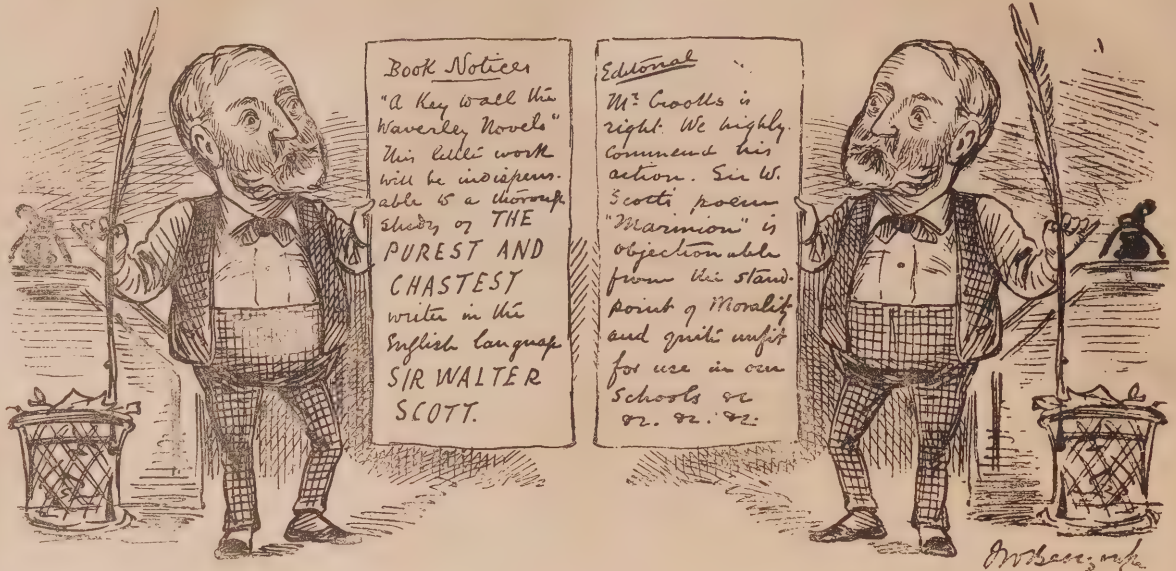 Book Notices
"A Key to all the
Waverley Novels"
This little work
will be indispens-
able to a thorough
study of THE
PUREST AND
CHASTEST
writer in the
English language
SIR WALTER
SCOTT.
Editorial
Mr. Crooks is
right. We highly
commend his
action. Sir W.
Scott's poem
"Marmion" is
objectionable
from the stand-
point of Morality
and quite unfit
for use in our
Schools &c
&c. &c. &c.